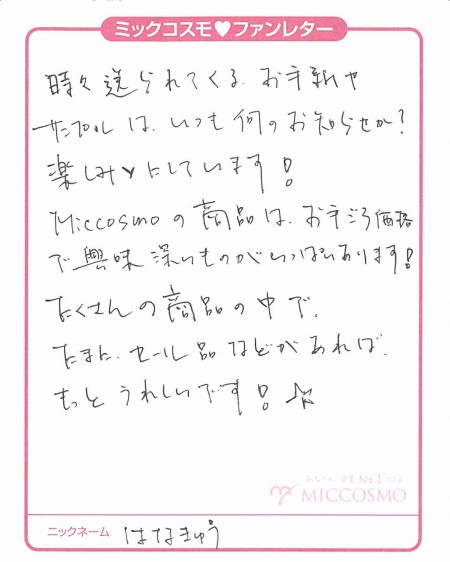 ミックコスモ♥ファンレター
時々送られてくる、お手紙や
サンプルは、いつも何のお知らせか？
楽しみにしています！
Miccosmoの商品は、お手ごろ価格
で興味深いものがいっぱいあります！
たくさんの商品の中で、
たまに、セール品などがあれば、
もっとうれしいです！☆
MICCOSMO
ニックネーム はなきゅう